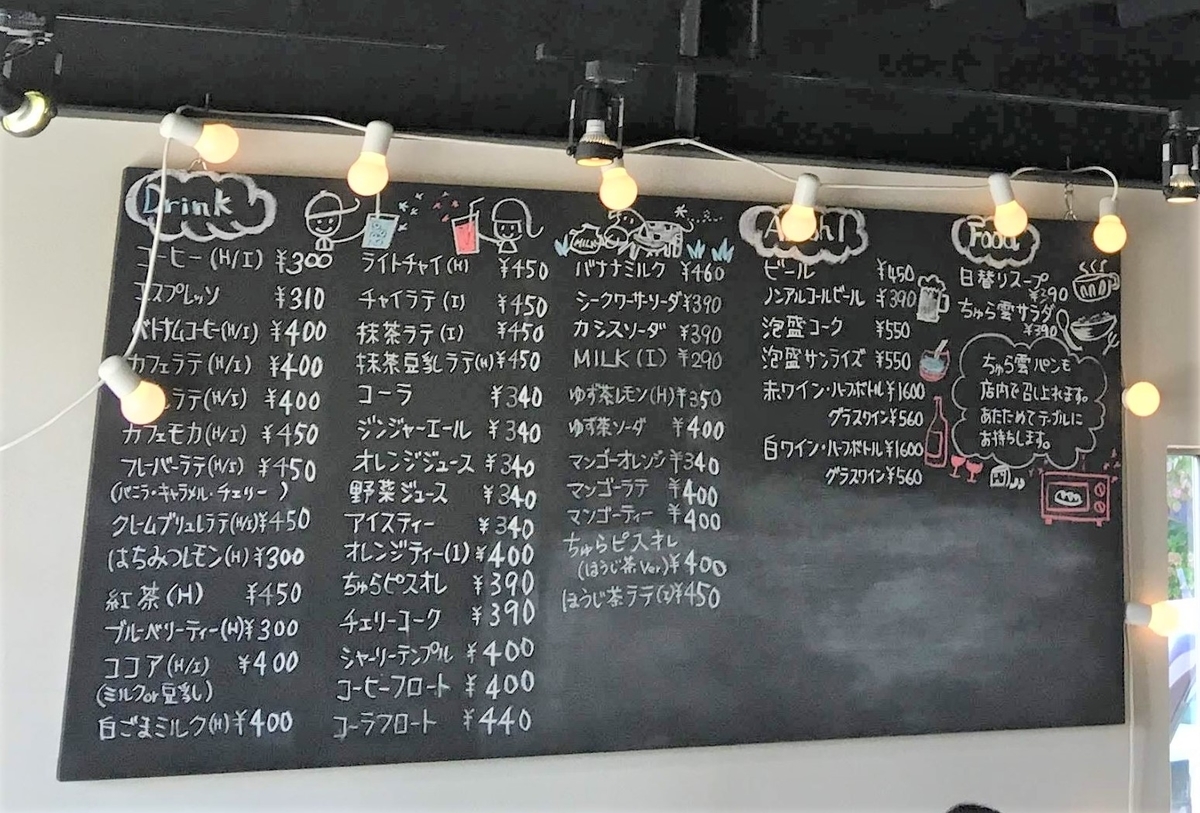 Drink
コーヒー (H/I) ¥300
エスプレッソ ¥310
ベトナムコーヒー(H/I) ¥400
カフェラテ(H/I) ¥400
ラテ(H/I) ¥400
カフェモカ(H/I) ¥450
フレーバーラテ(H/I) ¥450
(バニラ・キャラメル・チェリー)
クレームブリュレラテ(H/I)¥450
はちみつレモン(H) ¥300
紅茶(H) ¥450
ブルーベリーティー(H)¥300
ココア(H/I) ¥400
(ミルクor豆乳)
白ごまミルク(H)¥400
ライトチャイ(H) ¥450
チャイラテ(I) ¥450
抹茶ラテ(I) ¥450
抹茶豆乳ラテ(H)¥450
コーラ ¥340
ジンジャーエール ¥340
オレンジジュース ¥340
野菜ジュース ¥340
アイスティー ¥340
オレンジティー(I) ¥400
ちゅらピスオレ ¥390
チェリーコーク ¥390
シャーリーテンプル ¥400
コーヒーフロート ¥400
コーラフロート ¥440
MILK
バナナミルク ¥460
シークワーサーソーダ¥390
カシスソーダ ¥390
MILK(I) ¥290
ゆず茶レモン(H)¥350
ゆず茶ソーダ ¥400
マンゴーオレンジ¥340
マンゴーラテ ¥400
マンゴーティー ¥400
ちゅらピスオレ
(ほうじ茶Ver)¥400
ほうじ茶ラテ(I)¥450
ビール ¥450
ノンアルコールビール ¥390
泡盛コーク ¥550
泡盛サンライズ ¥550
赤ワイン・ハーフボトル¥1600
グラスワイン¥560
白ワイン・ハーフボトル¥1600
グラスワイン¥560
Food
日替りスープ
¥390
ちゅら雲サラダ
¥390
ちゅら雲パンも
店内で召し上れます。
あたためてテーブルに
お持ちします。